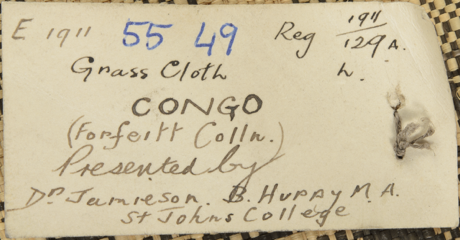 E 1911 55 49 Reg 1911/129 A.
Grass Cloth h.
CONGO
(Forfeitt Colln.)
Presented by
Dr Jamieson. B. Hurry M.A.
St Johns College